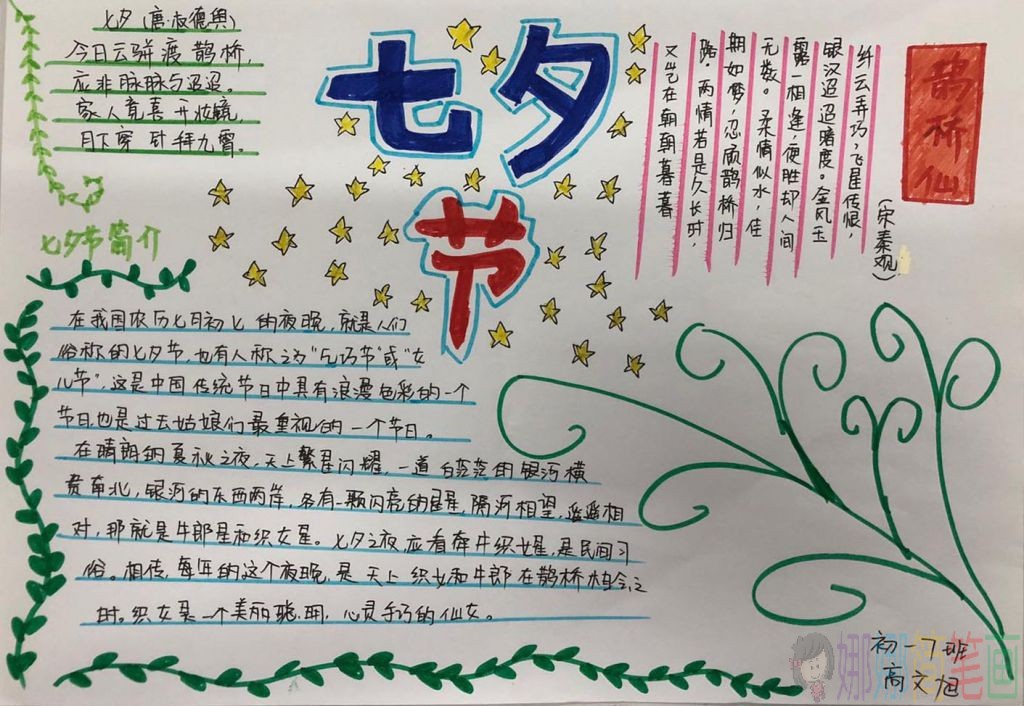 七夕(唐 权德舆)
今日云骈渡鹊桥,
应非脉脉与迢迢。
家人竟喜开妆镜,
月下穿针拜九霄。
七夕节
鹊桥仙
(宋秦观)
纤云弄巧,飞星传恨,
银汉迢迢暗度。金风玉
露一相逢,便胜却人间
无数。柔情似水,佳
期如梦,忍顾鹊桥归
路。两情若是久长时,
又岂在朝朝暮暮
七夕节简介
在我国农历七月初七的夜晚,就是人们
俗称的七夕节,也有人称之为"乞巧节"或"女
儿节",这是中国传统节日中具有浪漫色彩的一个
节日,也是过去姑娘们最重视的一个节日。
在晴朗的夏秋之夜,天上繁星闪耀,一道白茫茫的银河横
贯南北,银河的东西两岸,各有一颗闪亮的星星,隔河相望,遥遥相
对,那就是牛郎星和织女星。七夕之夜,应看牵牛织女星,是民间习
俗。相传,每年的这个夜晚,是天上织女和牛郎在鹊桥相会之
时。织女是一个美丽聪明,心灵手巧的仙女。
初一7班
高文旭
娜娜简笔画